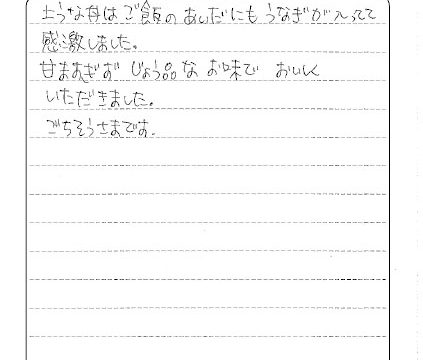 上うな丼はご飯のあいだにもうなぎが入ってて
感激しました。
甘ますぎず じょう品な お味で おいしく
いただきました。
ごちそうさまです。